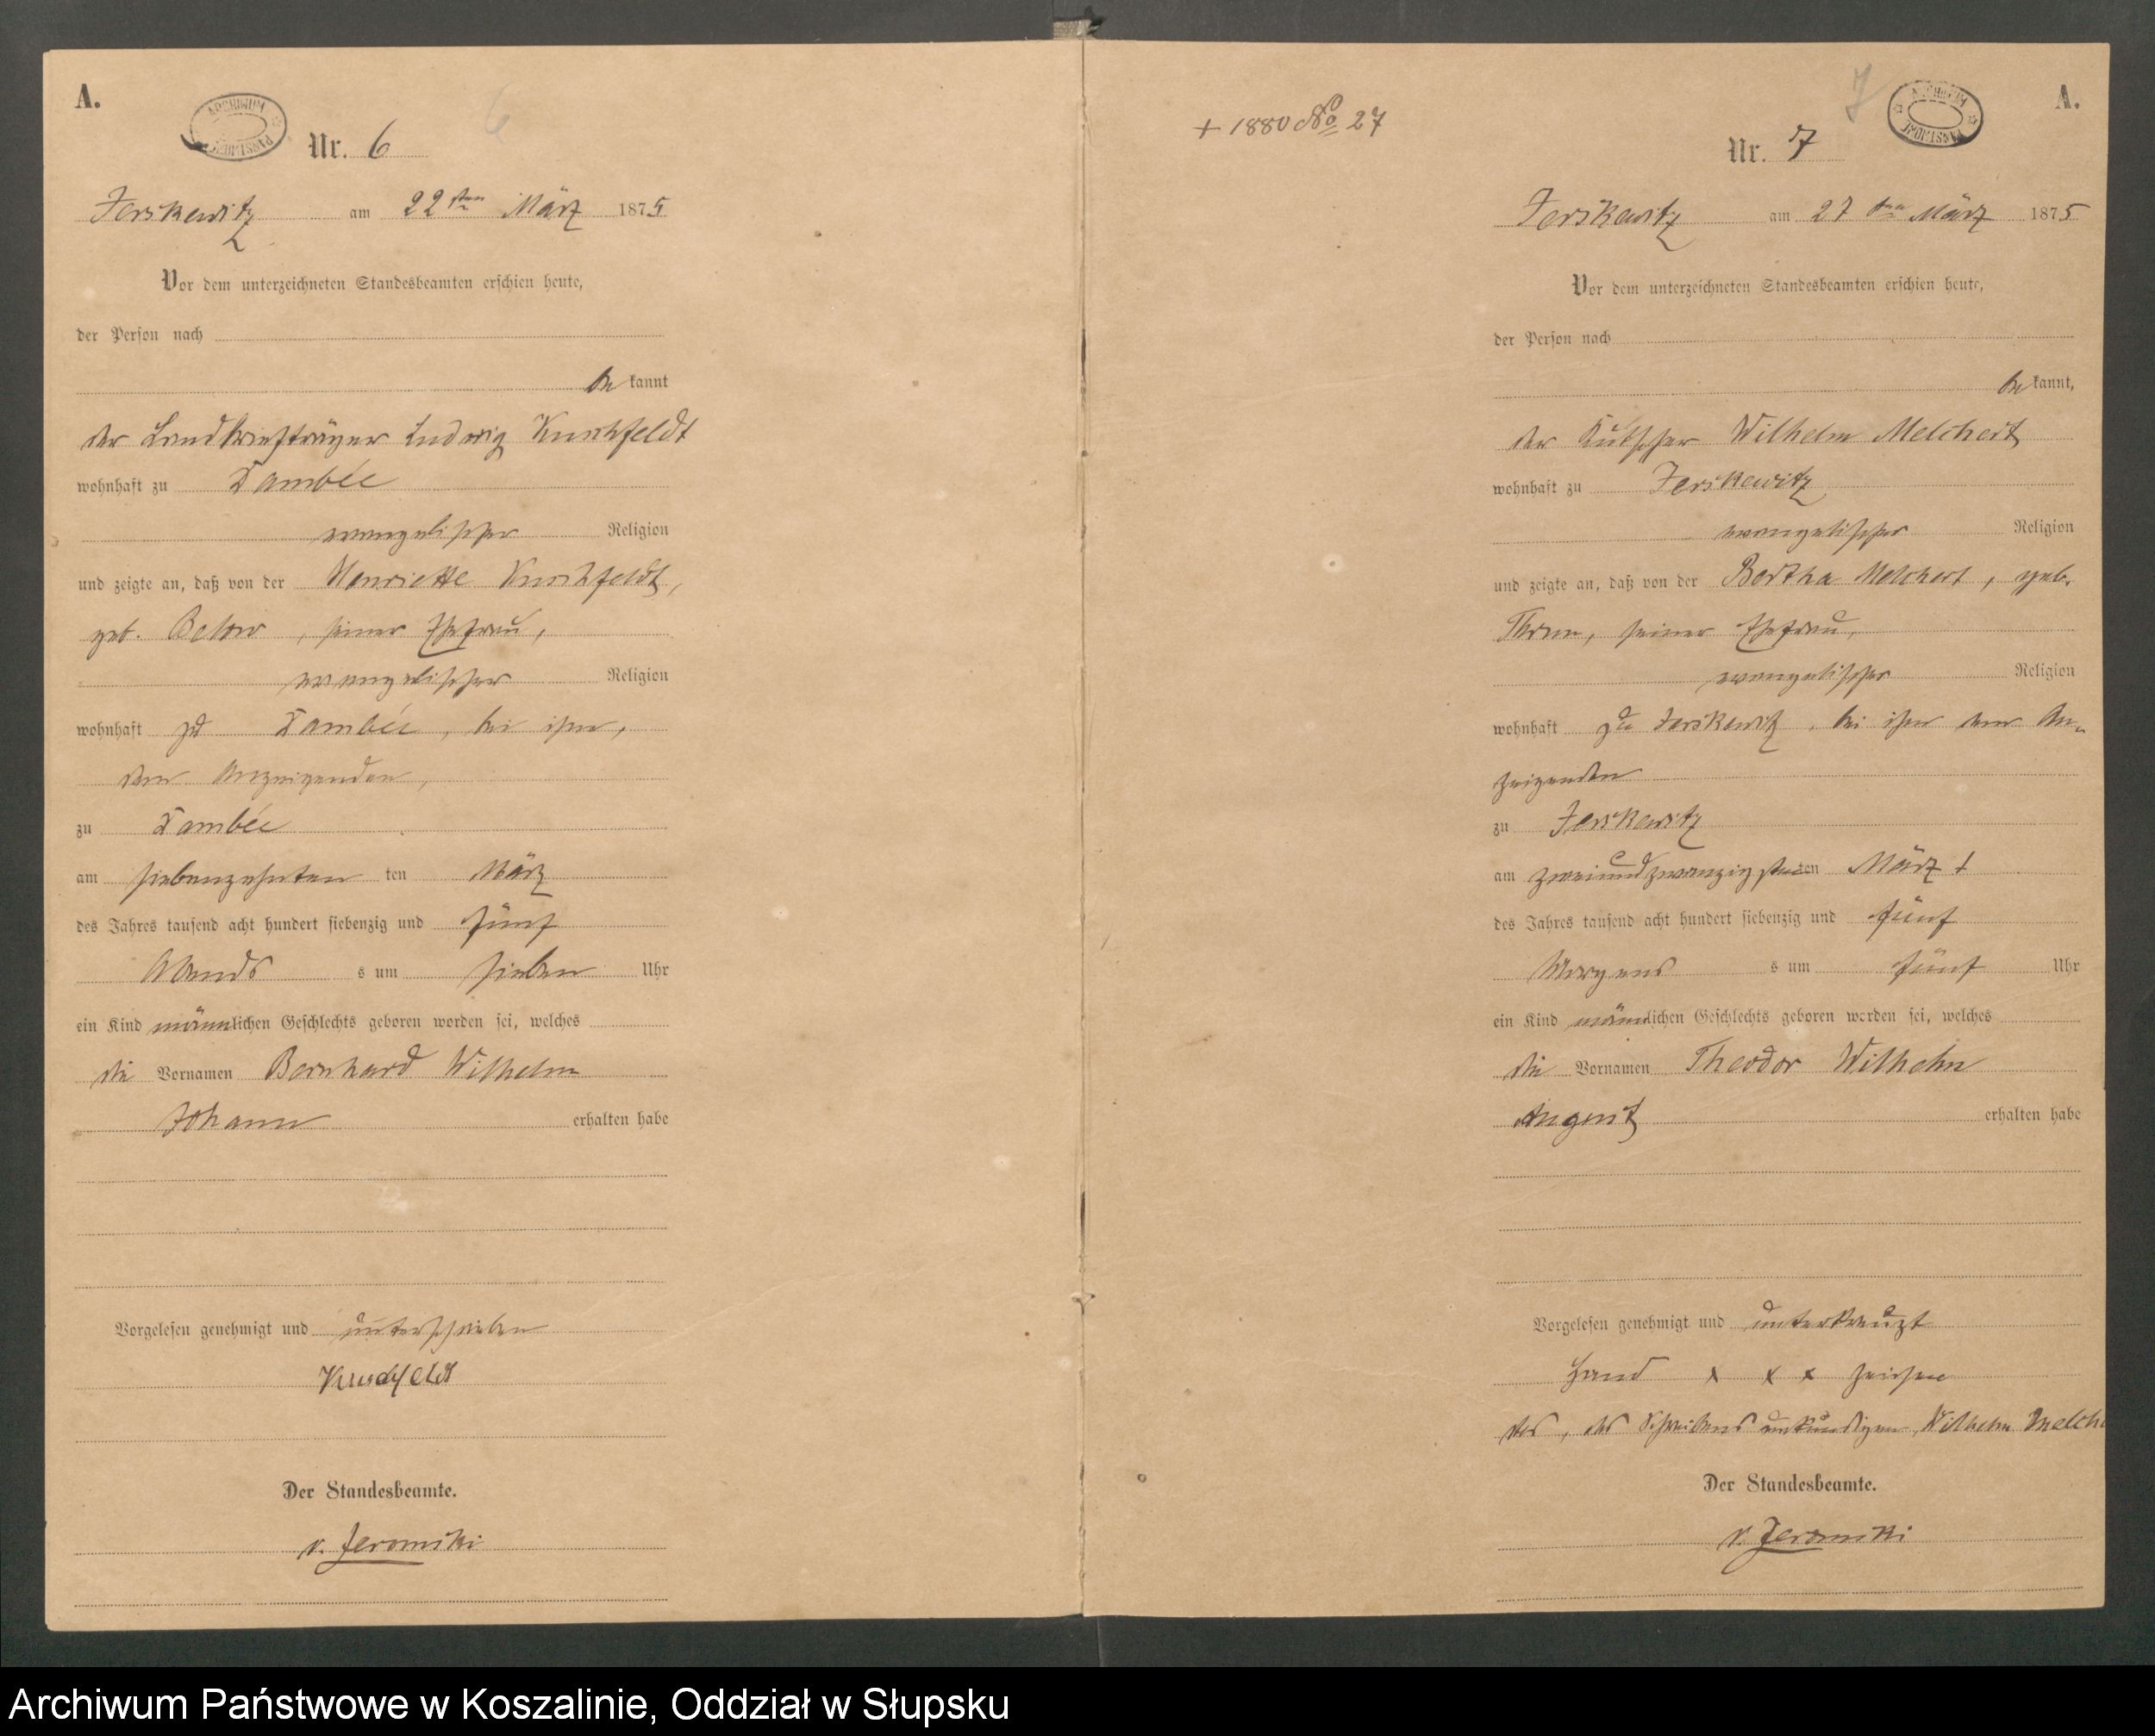 A.
ARCHIWUM PAŃSTWOWE
6
Nr. 6
Jerskewitz am 22ten März 1875
Vor dem unterzeichneten Standesbeamten erschien heute,
der Person nach
be kannt
der Landbriefträger Ludwig
wohnhaft zu Dambée
evangelischer Religion
und zeigte an, daß von der Henriette
geb. Below, seiner Ehefrau,
evangelischer Religion
wohnhaft zu Dambée, bei ihm,
dem Anzeigenden,
zu Dambée
am siebenzehnten ten März
des Jahres tausend acht hundert siebenzig und fünf
Abends s um sieben Uhr
ein Kind männlichen Geschlechts geboren worden sei, welches
die Vornamen Bernhard Wilhelm
Johann erhalten habe
Vorgelesen genehmigt und unterschrieben
Der Standesbeamte.
+ 1880 No 27
7
ARCHIWUM PAŃSTWOWE
A.
Nr. 7
Jerskewitz am 27ten März 1875
Vor dem unterzeichneten Standesbeamten erschien heute,
der Person nach
be kannt,
der Kutscher Wilhelm Melchert
wohnhaft zu Jerskewitz
evangelischer Religion
und zeigte an, daß von der Bertha Melchert, geb.
seiner Ehefrau,
evangelischer Religion
wohnhaft zu Jerskewitz, bei ihm dem An-
zeigenden
zu Jerskewitz
am zweiundzwanzigsten ten März +
des Jahres tausend acht hundert siebenzig und fünf
Morgens s um fünf Uhr
ein Kind männlichen Geschlechts geboren worden sei, welches
die Vornamen Theodor Wilhelm
August erhalten habe
Vorgelesen genehmigt und unterkreuzt
Hand x x x zeichen
des, des Schreibens unkundigen, Wilhelm Melch
Der Standesbeamte.
Archiwum Państwowe w Koszalinie, Oddział w Słupsku